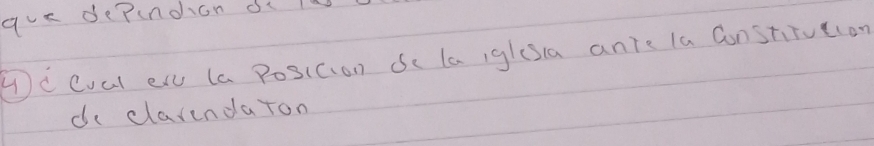 que dependian de
4) ¿ Cual era la Posicion de la iglesia ante la Constitucion
de clarendaton